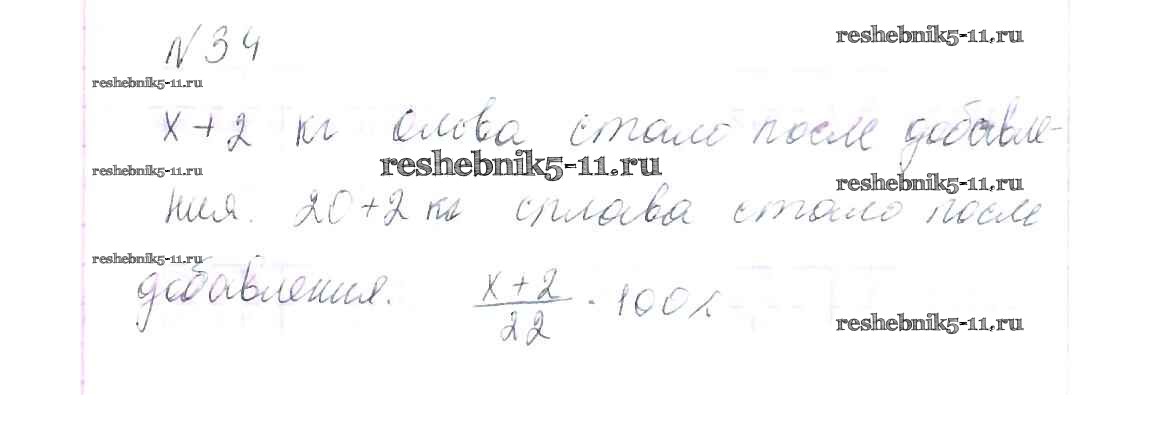 N34
reshebnik5-11.ru
reshebnik5-11.ru
x+2 кг олова стало после добавле-
reshebnik5-11.ru
reshebnik5-11.ru
reshebnik5-11.ru
ния. 20+2 кг сплава стало после
reshebnik5-11.ru
добавления. x+2/22 · 100%
reshebnik5-11.ru